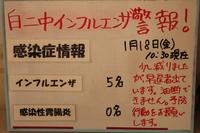 白二中インフルエンザ警報!
感染症情報
1月18日(金)
10:30現在
インフルエンザ 5名
感染性胃腸炎 0名
少し減りました
が、早退者出て
います。油断で
きません。予防
行動をお願い
します。